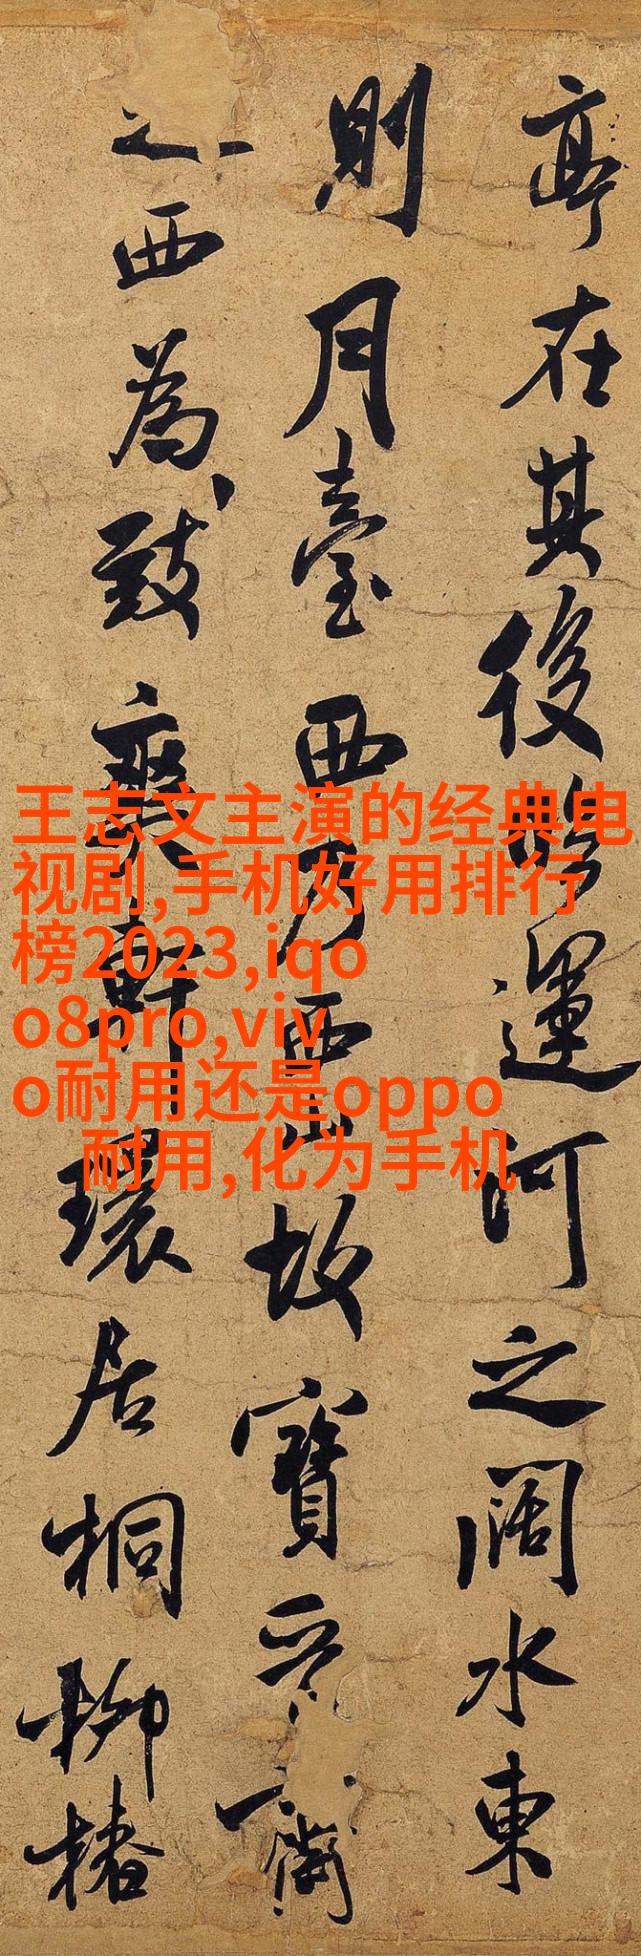 亭在其後臨運河之闊水東
則月臺西乃西山故寶晉齋
之西為致爽軒環居桐柳椿
王志文主演的经典电
视剧,手机好用排行
榜2023,iqo
o8pro,viv
o耐用还是oppo
耐用,化为手机